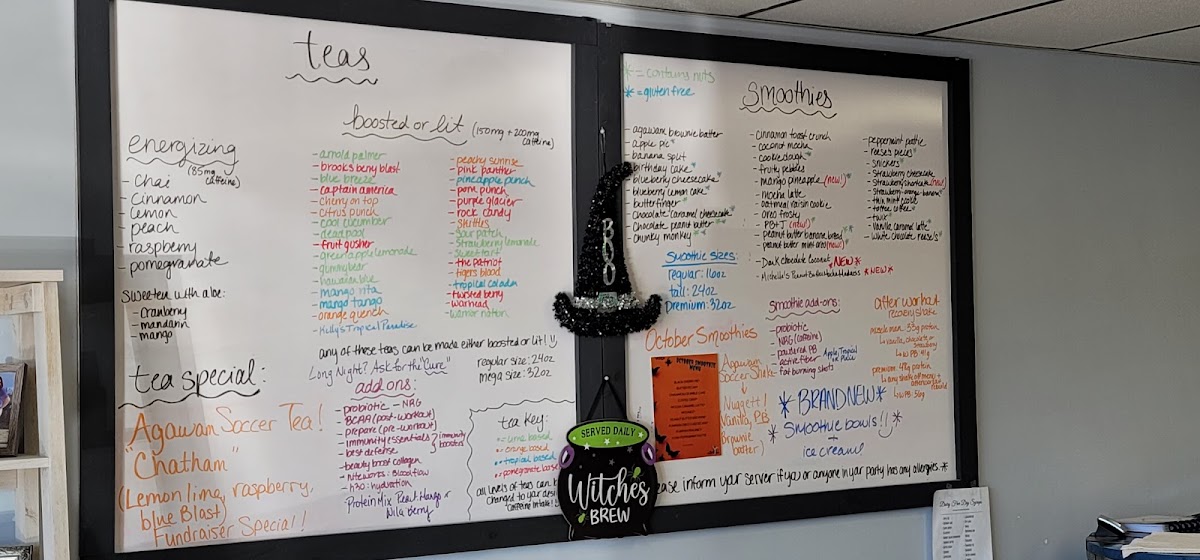 teas
boosted or lit (150mg + 200mg
caffeine)
energizing
(85mg
caffeine)
- Chai
- Cinnamon
- Lemon
- peach
- raspberry
- pomegranate
sweetened with aloe:
- Cranberry
- mandarin
- mango
- arnold palmer
- brooks berry blast
- blue breeze
- captain america
- cherry on top
- citrus punch
- cool cucumber
- dead pool
- fruit gusher
- green apple lemonade
- gummy bear
- hawaiian blue
- mango rita
- mango tango
- orange quench
- Kelly's Tropical Paradise
- peachy sunrise
- pink panther
- pineapple punch
- porn punch
- purple glacier
- rock candy
- skittles
- sour patch
- strawberry lemonade
- sweetart
- the patriot
- tigers blood
- tropical colada
- twisted berry
- warhead
- warrior nation
any of these teas can be made either boosted or lit!
Long Night? Ask for the "Cure"
regular size: 24oz
mega size: 32oz
tea special:
Agawam Soccer Tea!
"Chatham"
(Lemon lime, raspberry,
blue Blast)
Fundraiser Special!
add ons:
- probiotic - NRG
- BCAA (post-workout)
- prepare (pre-workout)
- immunity essentials
- best defense
immunity
boosters
- beauty boost collagen
- Niteworks: Bloodflow
- h30: hydration
- Protein Mix Peach Mango or
Wild Berry
tea key:
= lime based
= orange based
= tropical based
= pomegranate based
all levels of teas can be
changed to your desired
caffeine intake!
* = contains nuts
* = gluten free
Smoothies
- agawam brownie batter
- apple pie*
- banana split
- birthday cake*
- blueberry cheesecake*
- blueberry lemon cake*
- butterfinger*
- Chocolate caramel cheesecake*
- Chocolate peanut butter*
- Chunky monkey*
- cinnamon toast crunch
- coconut mocha
- cookie dough*
- fruity pebbles
- mango pineapple (new!)*
- mocha latte
- oatmeal raisin cookie
- oreo frosty
- PB+J (new!)
- peanut butter banana bread*
- peanut butter mini oreo (new!)
- Dark chocolate Coconut *NEW*
- Michelle's Peanut Butter *NEW*
- peppermint pattie
- reese's pieces*
- snickers*
- strawberry cheesecake
- strawberry shortcake (new!)
- strawberry-orange-banana*
- thin mint cookie
- toffee coffee*
- twix*
- vanilla caramel latte*
- white chocolate reese's*
smoothie sizes:
regular: 16oz
tall: 24oz
premium: 32oz
October Smoothies
OCTOBER SMOOTHIE
MENU
Agawam
Soccer Shake
Nuggett/
Vanilla, PB,
Brownie
batter)
smoothie add-ons:
- probiotic
- NRG (caffeine)
- powdered PB
- active fiber
Apple, Tropical
- fat burning shots
after workout
recovery shake
↳ vanilla, chocolate or
strawberry
*BRAND NEW*
*Smoothie bowls!!*
+
ice cream!
ease inform your server if you or anyone in your party has any allergies.*
BOO
SERVED DAILY
Witches
BREW